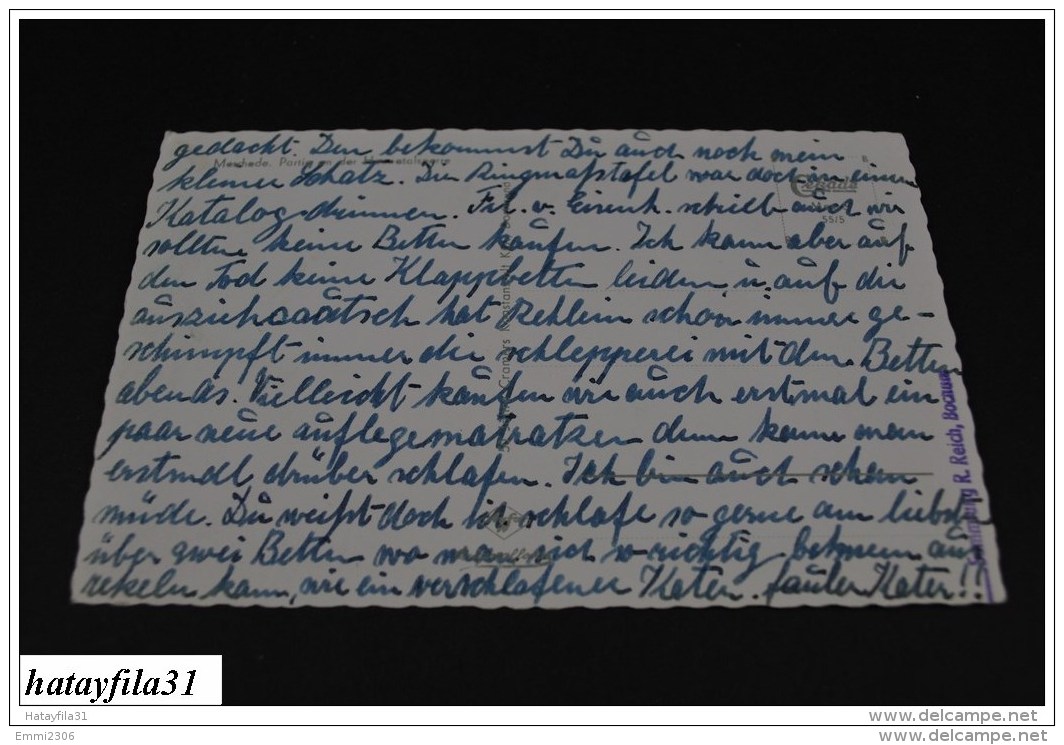 gedacht. Den bekommst Du auch noch mein
Meschede. Partie an der Hennetalsperre
kleiner Schatz. Die Ringmaßtafel war doch in einem
Katalog drinnen. Frl. v. Eisenh. schrieb auch wir
sollten keine Betten kaufen. Ich kann aber auf
den Tod keine Klappbetten leiden, u. auf die
hat schon immer ge-
schimpft immer die schlepperei mit den Betten
abends. Vielleicht kaufen wir auch erstmal ein
paar neue auflegematratzen dann kann man
erstmal drüber schlafen. Ich bin auch schon
müde. Du weißt doch ich schlafe so gerne am liebsten
über zwei Betten wo man sich so richtig bequem aus
rekeln kann, wie ein verschlafener Kater. fauler Kater!!
Cekade
55/5
Cramers Kunstanstalt KG.
Sammlung R. Reich, Bochum
hatayfila31
Hatayfila31
Emmi2306
www.delcampe.net
www.delcampe.net